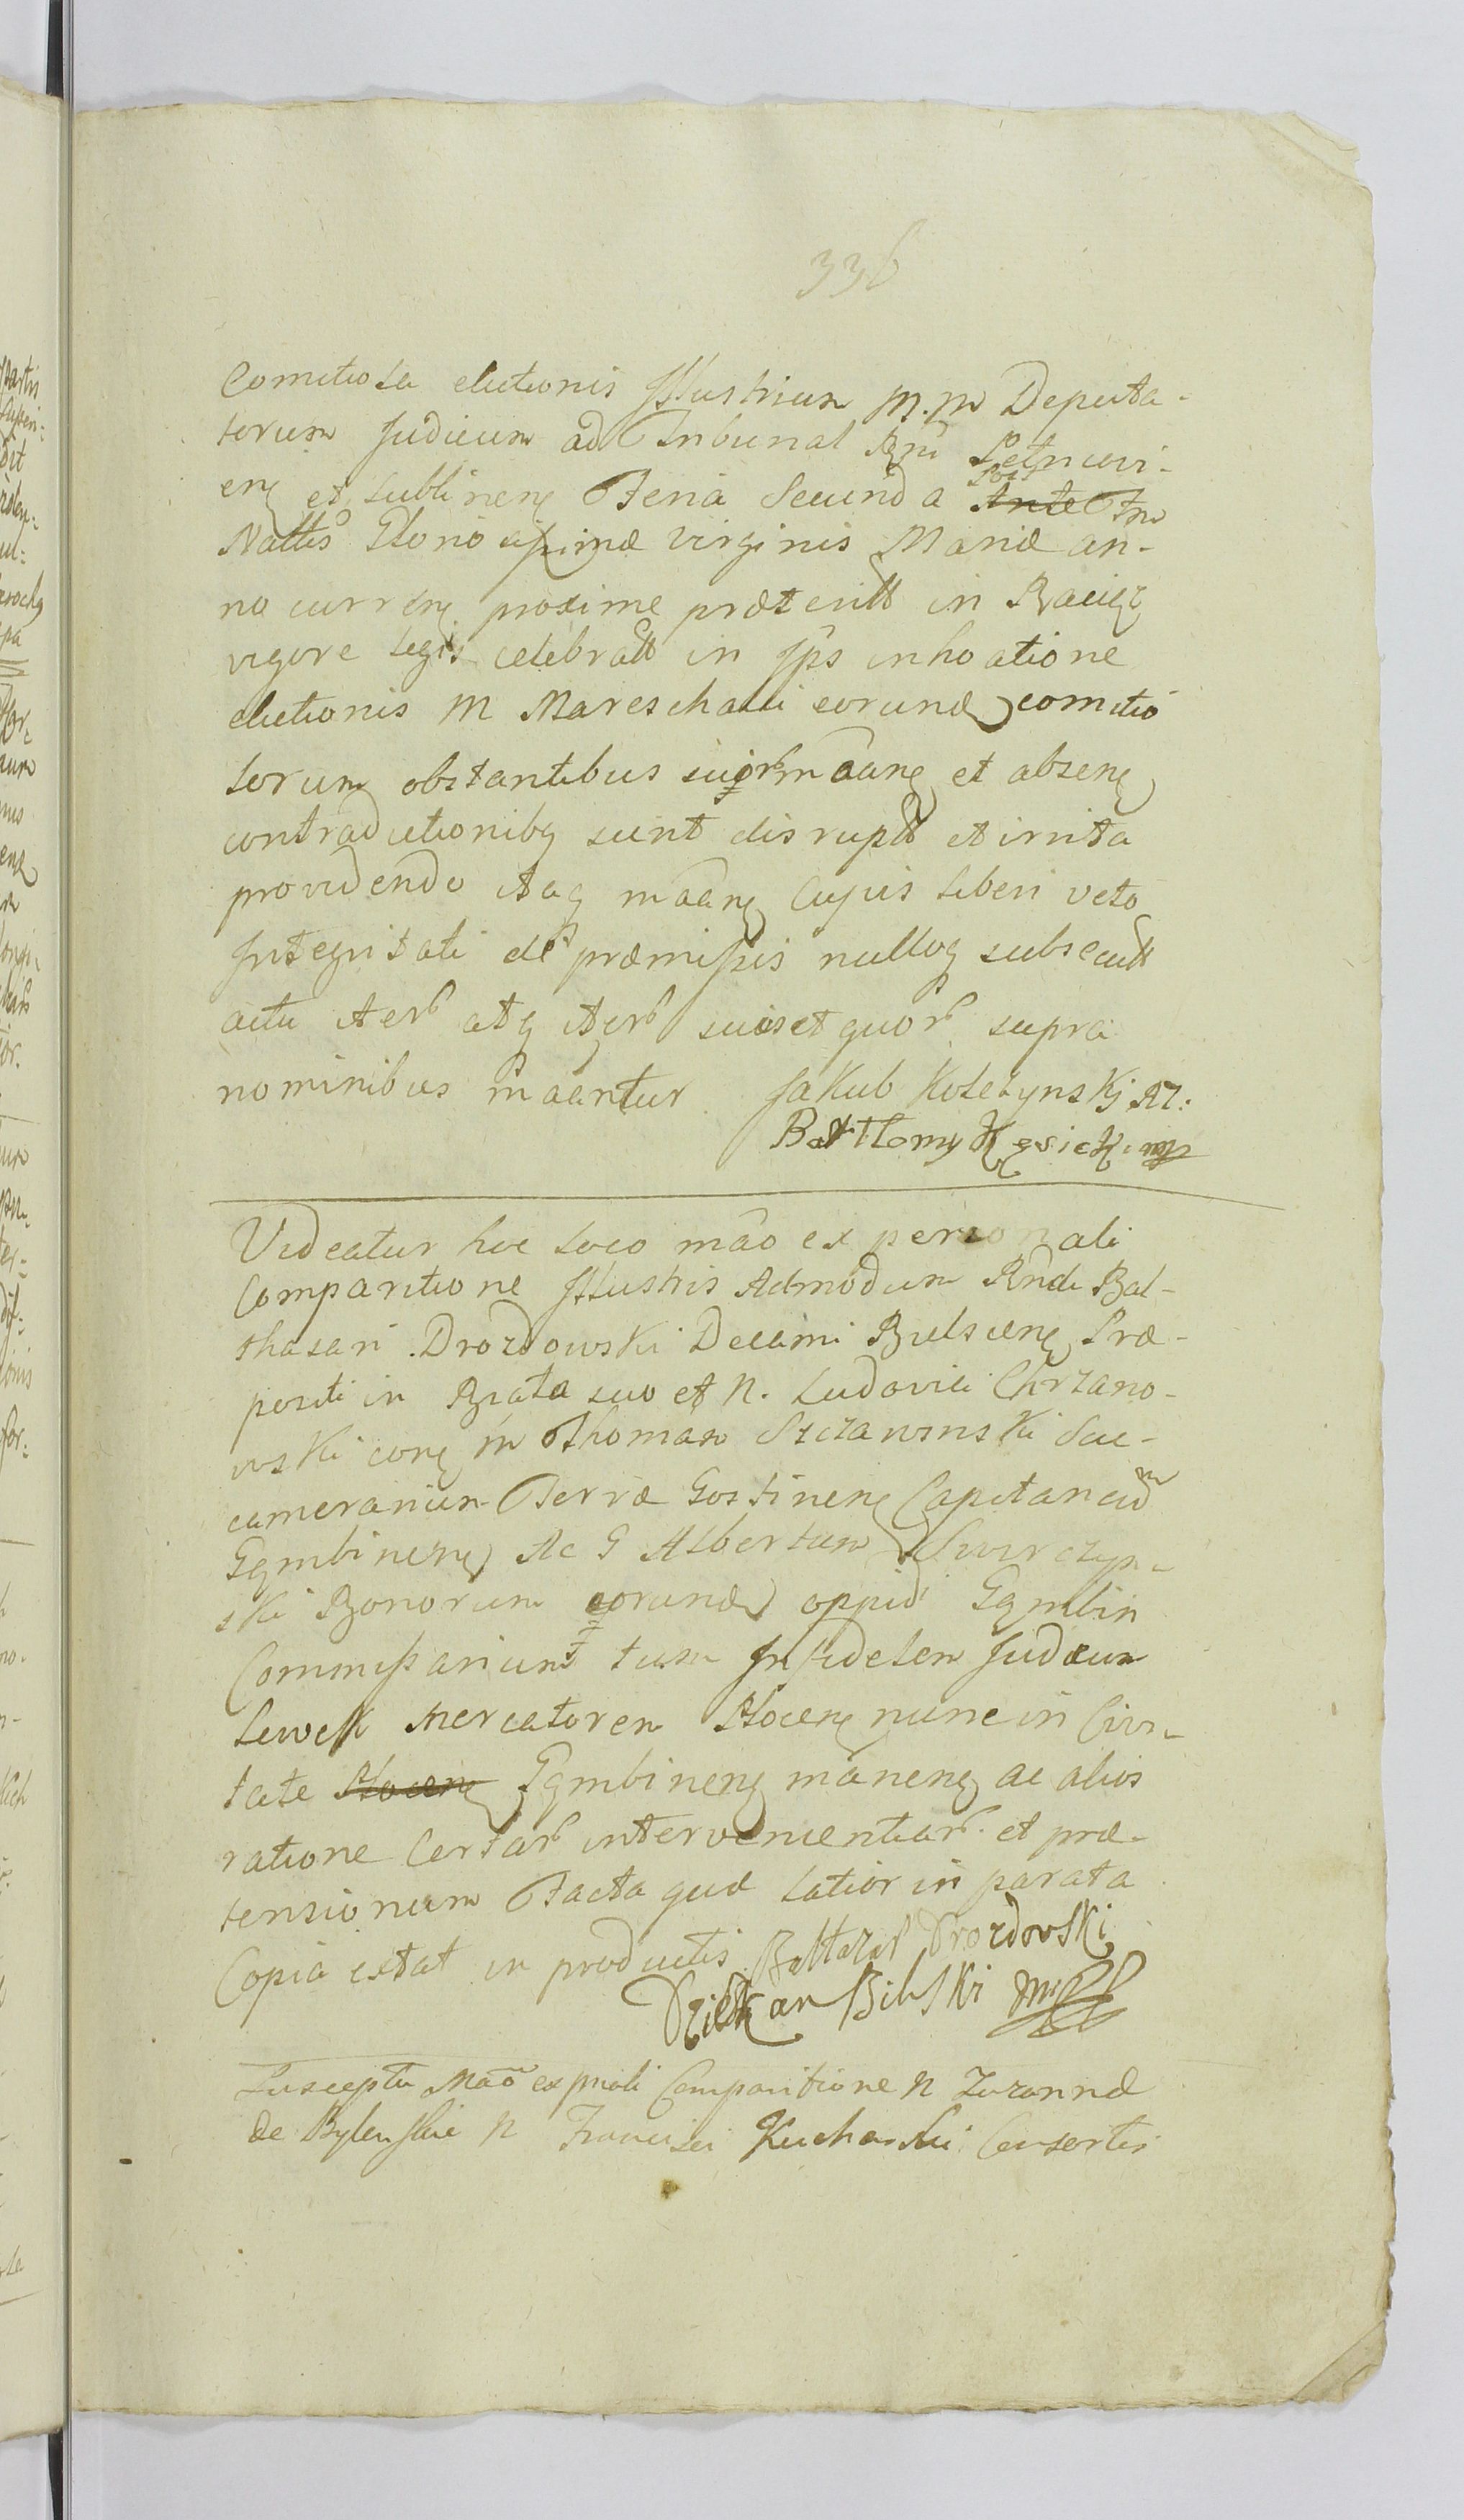 336
Comitiola electionis Illustrium M.M Deputa-
torum Judicum ad Tribunal Rni Petricovi-
enę et Lublinenę Feria Secunda Post Ante Ftm
Nattis Gloriosissimæ Virginis Mariæ an-
no currenę proxime præteritt in Raciąż
vigore legis celebratt in Ips inhoatione
electionis M Mareschalli eorund comitio
lorum obstantibus suipsorum maanę et absenę
contradictionibq sunt disruptt et irrita
providendo itaq maanę cujus liberi veto
Integritati de præmissis nulloq subsecutt
actu iter atq iter suis et quor supra
nominibus maantur Jakub Koletynskj RZ:
Bartlomy Kęsicki mp
Videatur hoc loco mão ex personali
Comparitione Illustris Admodum Rndi Bal-
thasari Drozdowski Decani Bielscenę Præ-
positi in Biała suo et N. Ludovici Chrzano-
wski conę M Thomam Szczawinski Suc-
camerarium Terræ Gostinenę Capitaneum
Gąmbinenę Ac G Albertum Swirczyn-
ski Bonorum eorund oppid Gąmbin
Commissarium tum Infidelem Judæum
Lewek Mercatorem Plocenę nunc in Civi-
tate Plocenę Gąmbinenę manenę ac alios
ratione certar intervenientiar et præ-
tensionum Facta quæ latior in parata
Copia extat in productis Baltazar Drozdowski
Dziekan Bilski mp
Suscepta Mão ex pnali Comparitione N Zuzannæ
de N Francisci Kucharski Consortis